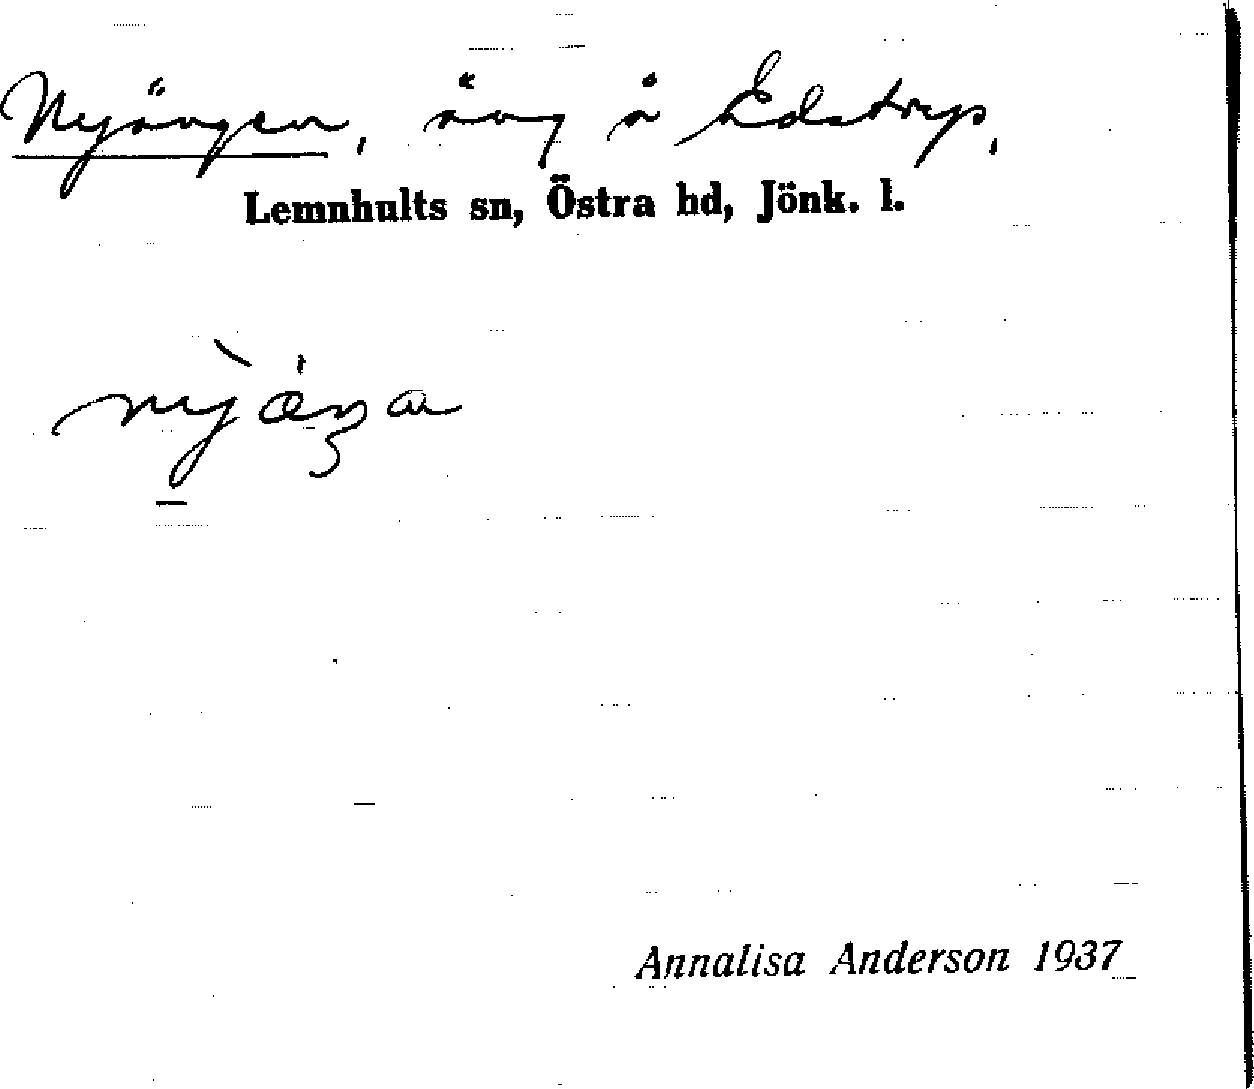 Nyängen, äng å Edstorp,
Lemnhults sn, Östra hd, Jönk. l.
Annalisa Anderson 1937